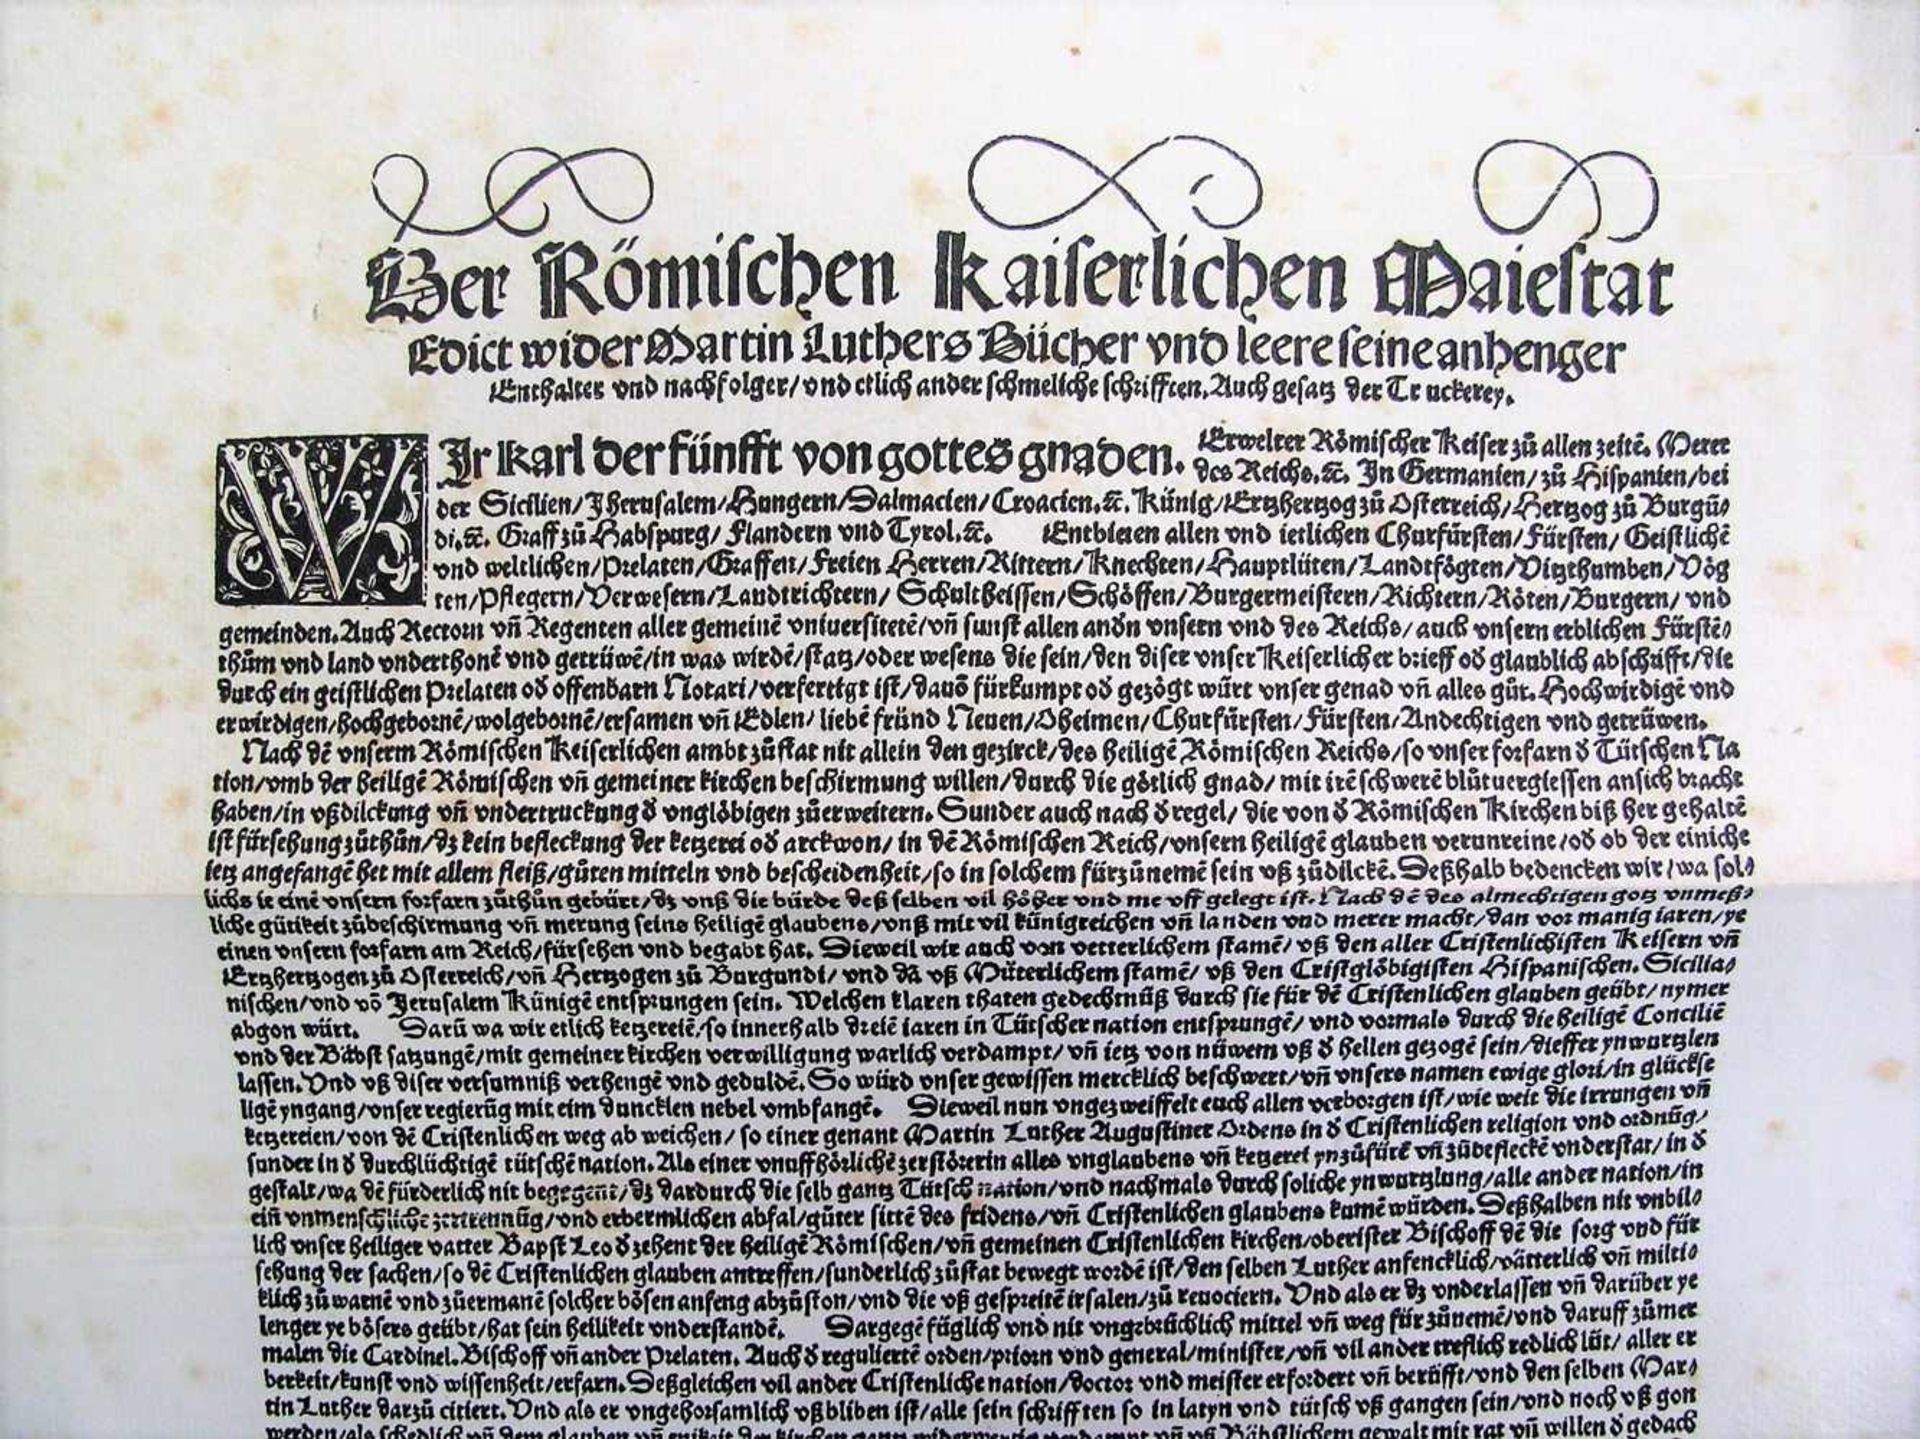 Der Römischen Kaiserlichen Maiestat
Edict wider Martin Luthers Bücher vnd leere seine anhenger
Enthalter vnd nachfolger/vnd etlich ander schmeliche schrifften. Auch gesatz der Truckerey.
WIr Karl der fünfft von gottes gnaden. Erwelter Römischer Keiser zů allen zeitē. Merer
des Reichs.ꝛc. In Germanien/zů Hispanien/bei
der Sicilien/Jherusalem/Hungern/Dalmacien/Croacien.ꝛc. Künig/Ertzhertzog zů Osterreich/Hertzog zů Burgū⸗
di.ꝛc. Graff zů Habspurg/Flandern vnd Tyrol.ꝛc. Entbieten allen vnd ietlichen Churfürsten/Fürsten/Geistlichē
vnd weltlichen/Prelaten/Graffen/Freien Herren/Rittern/Knechten/Hauptlüten/Landtfögten/Vitzthumben/Vög
ten/Pflegern/Verwesern/Landtrichtern/Schultheissen/Schöffen/Burgermeistern/Richtern/Röten/Burgern/vnd
gemeinden. Auch Rectorn vn̄ Regenten aller gemeinē vniuersitetē/vn̄ sunst allen andn vnsern vnd des Reichs/auch vnsern erblichen Fürstē⸗
thům vnd land vnderthonē vnd getrüwē/in was wirdē/statz/oder wesens die sein/den diser vnser Keiserlicher brieff od glaublich abschrifft/die
durch ein geistlichen Prelaten od offenbarn Notari/verfertigt ist/dauō fürkumpt od gezögt würt vnser genad vn̄ alles gůt. Hochwirdigē vnd
erwirdigen/hochgebornē/wolgebornē/ersamen vn̄ Edlen/liebē fründ Neuen/Oheimen/Churfürsten/Fürsten/Andechtigen vnd getrüwen.
Nach dē vnserm Römischen Keiserlichen ambt zůstat nit allein den gezirck/des heiligē Römischen Reichs/so vnser forfarn d Tütschen Na
tion/vmb der heiligē Römischen vn̄ gemeiner kirchen beschirmung willen/durch die götlich gnad/mit irē schwerē blůtuergiessen an sich bracht
haben/in vßdilckung vn̄ vndertruckung d vnglöbigen zůerweitern. Sunder auch nach d regel/die von d Römischen Kirchen biß her gehaltē
ist fürsehung zůthůn/dz kein befleckung der ketzerei od arckwon/in dē Römischen Reich/vnsern heiligē glauben verunreine/od ob der einiche
ietz angefangē het mit allem fleiß/gůten mitteln vnd bescheidenheit/so in solchem fürzůnemē sein vß zůdilckē. Deßhalb bedencken wir/wa sol⸗
lichs ie einē vnsern forfarn zůthůn gebürt/dz vnß die bürde deß selben vil höher vnd me vff gelegt ist. Nach dē des almechtigen gotz vnmeß⸗
liche gütikeit zůbeschirmung vn̄ merung seins heiligē glaubens/vnß mit vil künigreichen vn̄ landen vnd merer macht/dan vor manig iaren/ye
einen vnsern forfarn am Reich/fürsehen vnd begabt hat. Dieweil wir auch von vetterlichem stamē/vß den aller Cristenlichisten Keisern vn̄
Ertzhertzogen zů Osterreich/vn̄ Hertzogen zů Burgundi/vnd dā vß Můterlichem stamē/vß den Cristglöbigisten Hispanischen. Sicilia⸗
nischen/vnd vō Jerusalem Künigē entsprungen sein. Welchen klaren thaten gedechtnüß durch sie für dē Cristenlichen glauben geübt/nymer
abgon würt. Darū wa wir etlich ketzereiē/so innerhalb dreiē iaren in Tütscher nation entsprungē/vnd vormals durch die heiligē Conciliē
vnd der Bäbst satzungē/mit gemeiner kirchen verwilligung warlich verdampt/vn̄ ietz von nüwem vß d hellen gezogē sein/dieffer ynwurtzlen
lassen. Vnd vß diser versumniß verhengē vnd geduldē. So würd vnser gewissen mercklich beschwert/vn̄ vnsers namen ewige glori/in glückse
ligē yngang/vnser regierūg mit eim duncklen nebel vmbfangē. Dieweil nun vngezweiffelt euch allen verborgen ist/wie weit die irrungen vn̄
ketzereien/von dē Cristenlichen weg ab weichen/so einer genant Martin Luther Augustiner Ordens in d Cristenlichen religion vnd ordnūg/
sunder in d durchlüchtigē tütschē nation. Als einer vnuffhörlichē zerstörerin alles vnglaubens vn̄ ketzerei ynzůfürē vn̄ zůbefleckē vnderstat/in d
gestalt/wa dē fürderlich nit begegent/dz dardurch die selb gantz Tütsch nation/vnd nachmals durch soliche ynwurtzlung/alle ander nation/in
ein̄ vnmenschliche zertrennūg/vnd erbermlichen abfal/gůter sittē des fridens/vn̄ Cristenlichen glaubens kumē würden. Deßhalben nit vnbil⸗
lich vnser heiliger vatter Bapst Leo d zehent der heiligē Römischen/vn̄ gemeinen Cristenlichen kirchen/oberister Bischoff dē die sorg vnd für
sehung der sachen/so dē Cristenlichen glauben antreffen/sunderlich zůstat bewegt wordē ist/den selben Luther anfencklich/vätterlich vn̄ milti⸗
klich zů warnē vnd zůermanē solcher bösen anfeng abzůston/vnd die vß gespreitē irsalen/zů reuociern. Vnd als er dz vnderlassen vn̄ darüber ye
lenger ye bösers geübt/hat sein heilikeit vnderstandē. Dargegē füglich vnd nit vngebrüchlich mittel vn̄ weg für zůnemē/vnd daruff zůmer
malen die Cardinel. Bischoff vn̄ ander Prelaten. Auch d regulierтē orden/priorn vnd general/minister/vn̄ vil ander treflich redlich lüt/aller er
berkeit/kunst vnd wissenheit/erfarn. Deßgleichen vil ander Cristenliche nation/doctor vnd meister erfordert vn̄ berüfft/vnd den selben Mar⸗
tin Luther darzů citiert. Vnd als er vngehorsamlich vßbliben ist/alle sein schrifften so in latyn vnd tütsch vß gangen sein/vnd noch vß gon
werden/als schedlich vn̄ dem glauben vn̄ enikeit der kirchen gantz widerwertig verdampt vn̄ vß Bäbstlichem gewalt mit rat vn̄ willen d gedach